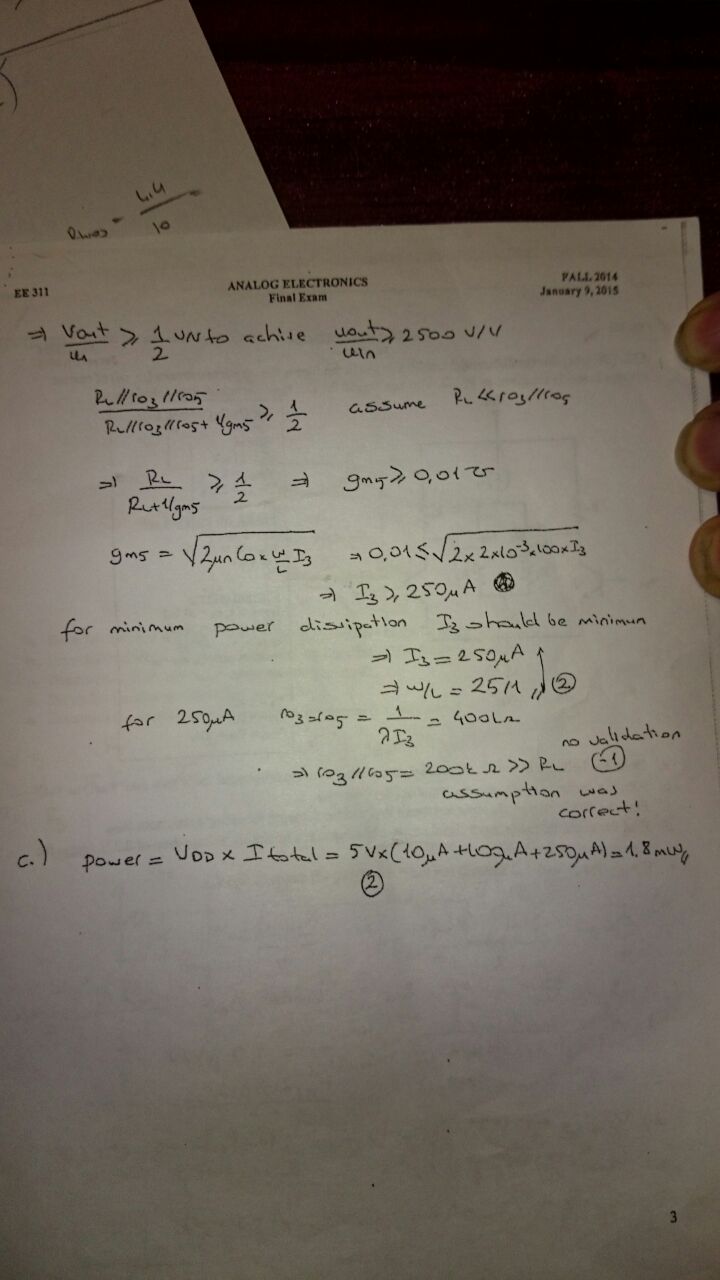 4.4
10
EE 311
ANALOG ELECTRONICS
Final Exam
FALL 2014
January 9, 2015
⇒ Vout/u1 ≥ 1/2 V/V to achive uout/uin ≥ 2500 V/V
RL//ro3//ro5 / RL//ro3//ro5 + 1/gm5 ≥ 1/2 assume RL << ro3//ro5
⇒ RL / RL+1/gm5 ≥ 1/2 ⇒ gm5 ≥ 0,01 ℧
gm5 = √(2μnCox W/L I3) ⇒ 0,01 ≤ √(2×2×10^-3×100×I3)
⇒ I3 ≥ 250μA
for minimum power dissipation I3 should be minimun
⇒ I3 = 250μA
⇒ W/L = 25/1 ②
for 250μA ro3=ro5 = 1/λI3 = 400kΩ
no validation
⇒ ro3//ro5 = 200kΩ >> RL (-1)
assumption was
correct!
c.) power = VDD × Itotal = 5V×(10μA+100μA+250μA) = 1,8 mW
②
3